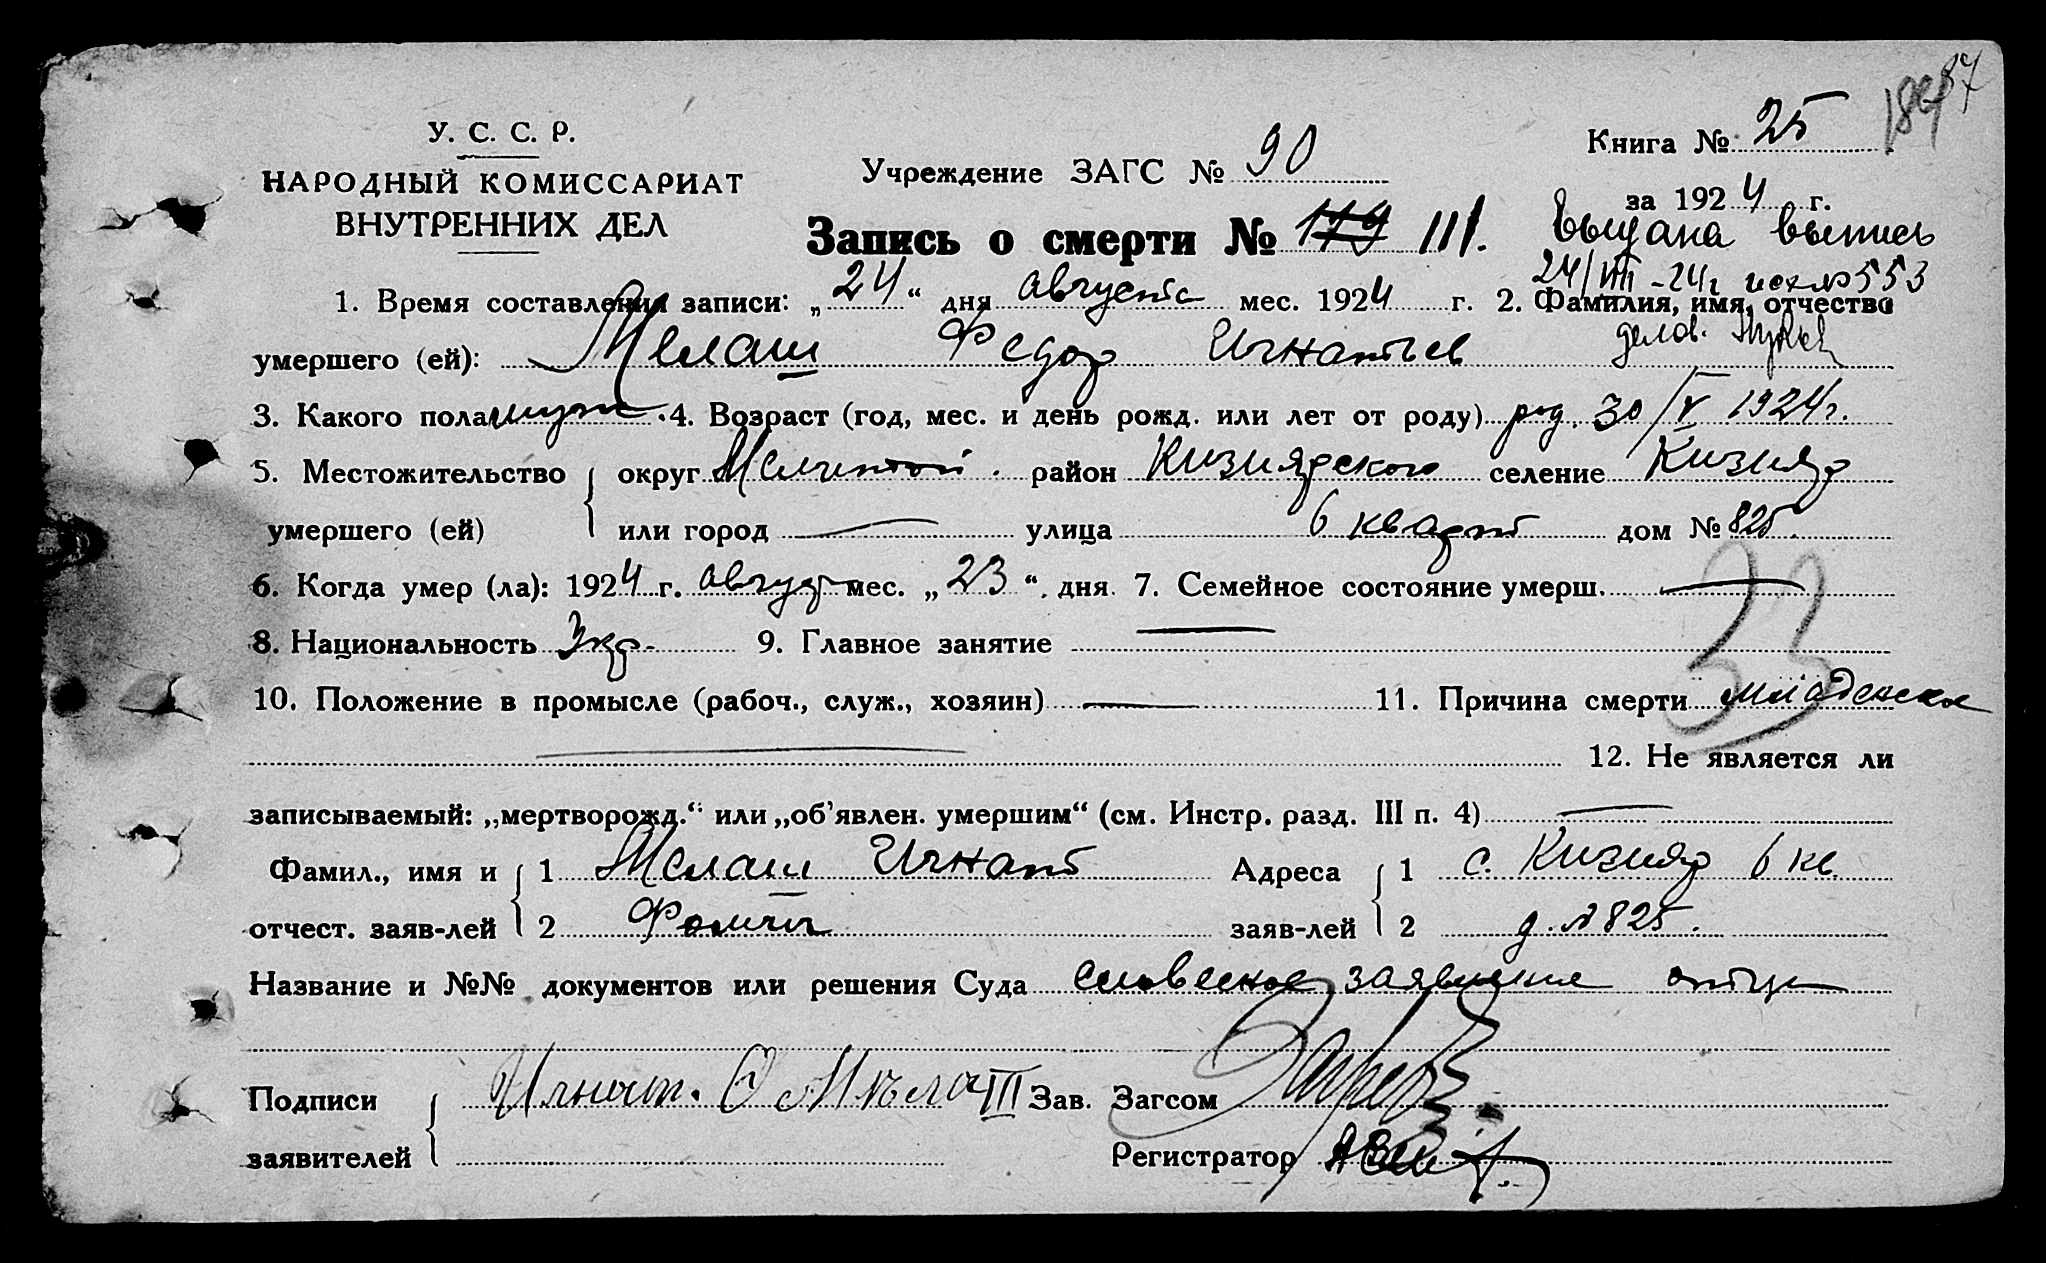 187
У. С. С. Р.
НАРОДНЫЙ КОМИССАРИАТ
ВНУТРЕННИХ ДЕЛ
Учреждение ЗАГС № 90
Книга № 25
за 1924 г.
Запись о смерти № 119 111.
Выдана выпись
24/VIII -24г исх№553
1. Время составления записи: „24“ дня августа мес. 1924 г. 2. Фамилия, имя, отчество
делов.
умершего (ей): Мелаш Федор Игнатьев
3. Какого пола муж. 4. Возраст (год, мес. и день рожд. или лет от роду) род. 30/V 1924г.
5. Местожительство округ Мелитопол. район Кизиярского селение Кизияр
умершего (ей) или город — улица 6 кварт дом № 825.
6. Когда умер (ла): 1924 г. август мес. „23“. дня. 7. Семейное состояние умерш. —
8. Национальность Укр. 9. Главное занятие —
33
10. Положение в промысле (рабоч., служ., хозяин) — 11. Причина смерти младенская
— 12. Не является ли
записываемый: „мертворожд.“ или „об'явлен. умершим“ (см. Инстр. разд. III п. 4) —
Фамил., имя и 1 Мелаш Игнат Адреса 1 с. Кизияр 6 кв.
отчест. заяв-лей 2 Фомич заяв-лей 2 д. №825.
Название и №№ документов или решения Суда словесное заявление отца
Подписи Игнат. Ф Мѣлаш Зав. Загсом
заявителей Регистратор